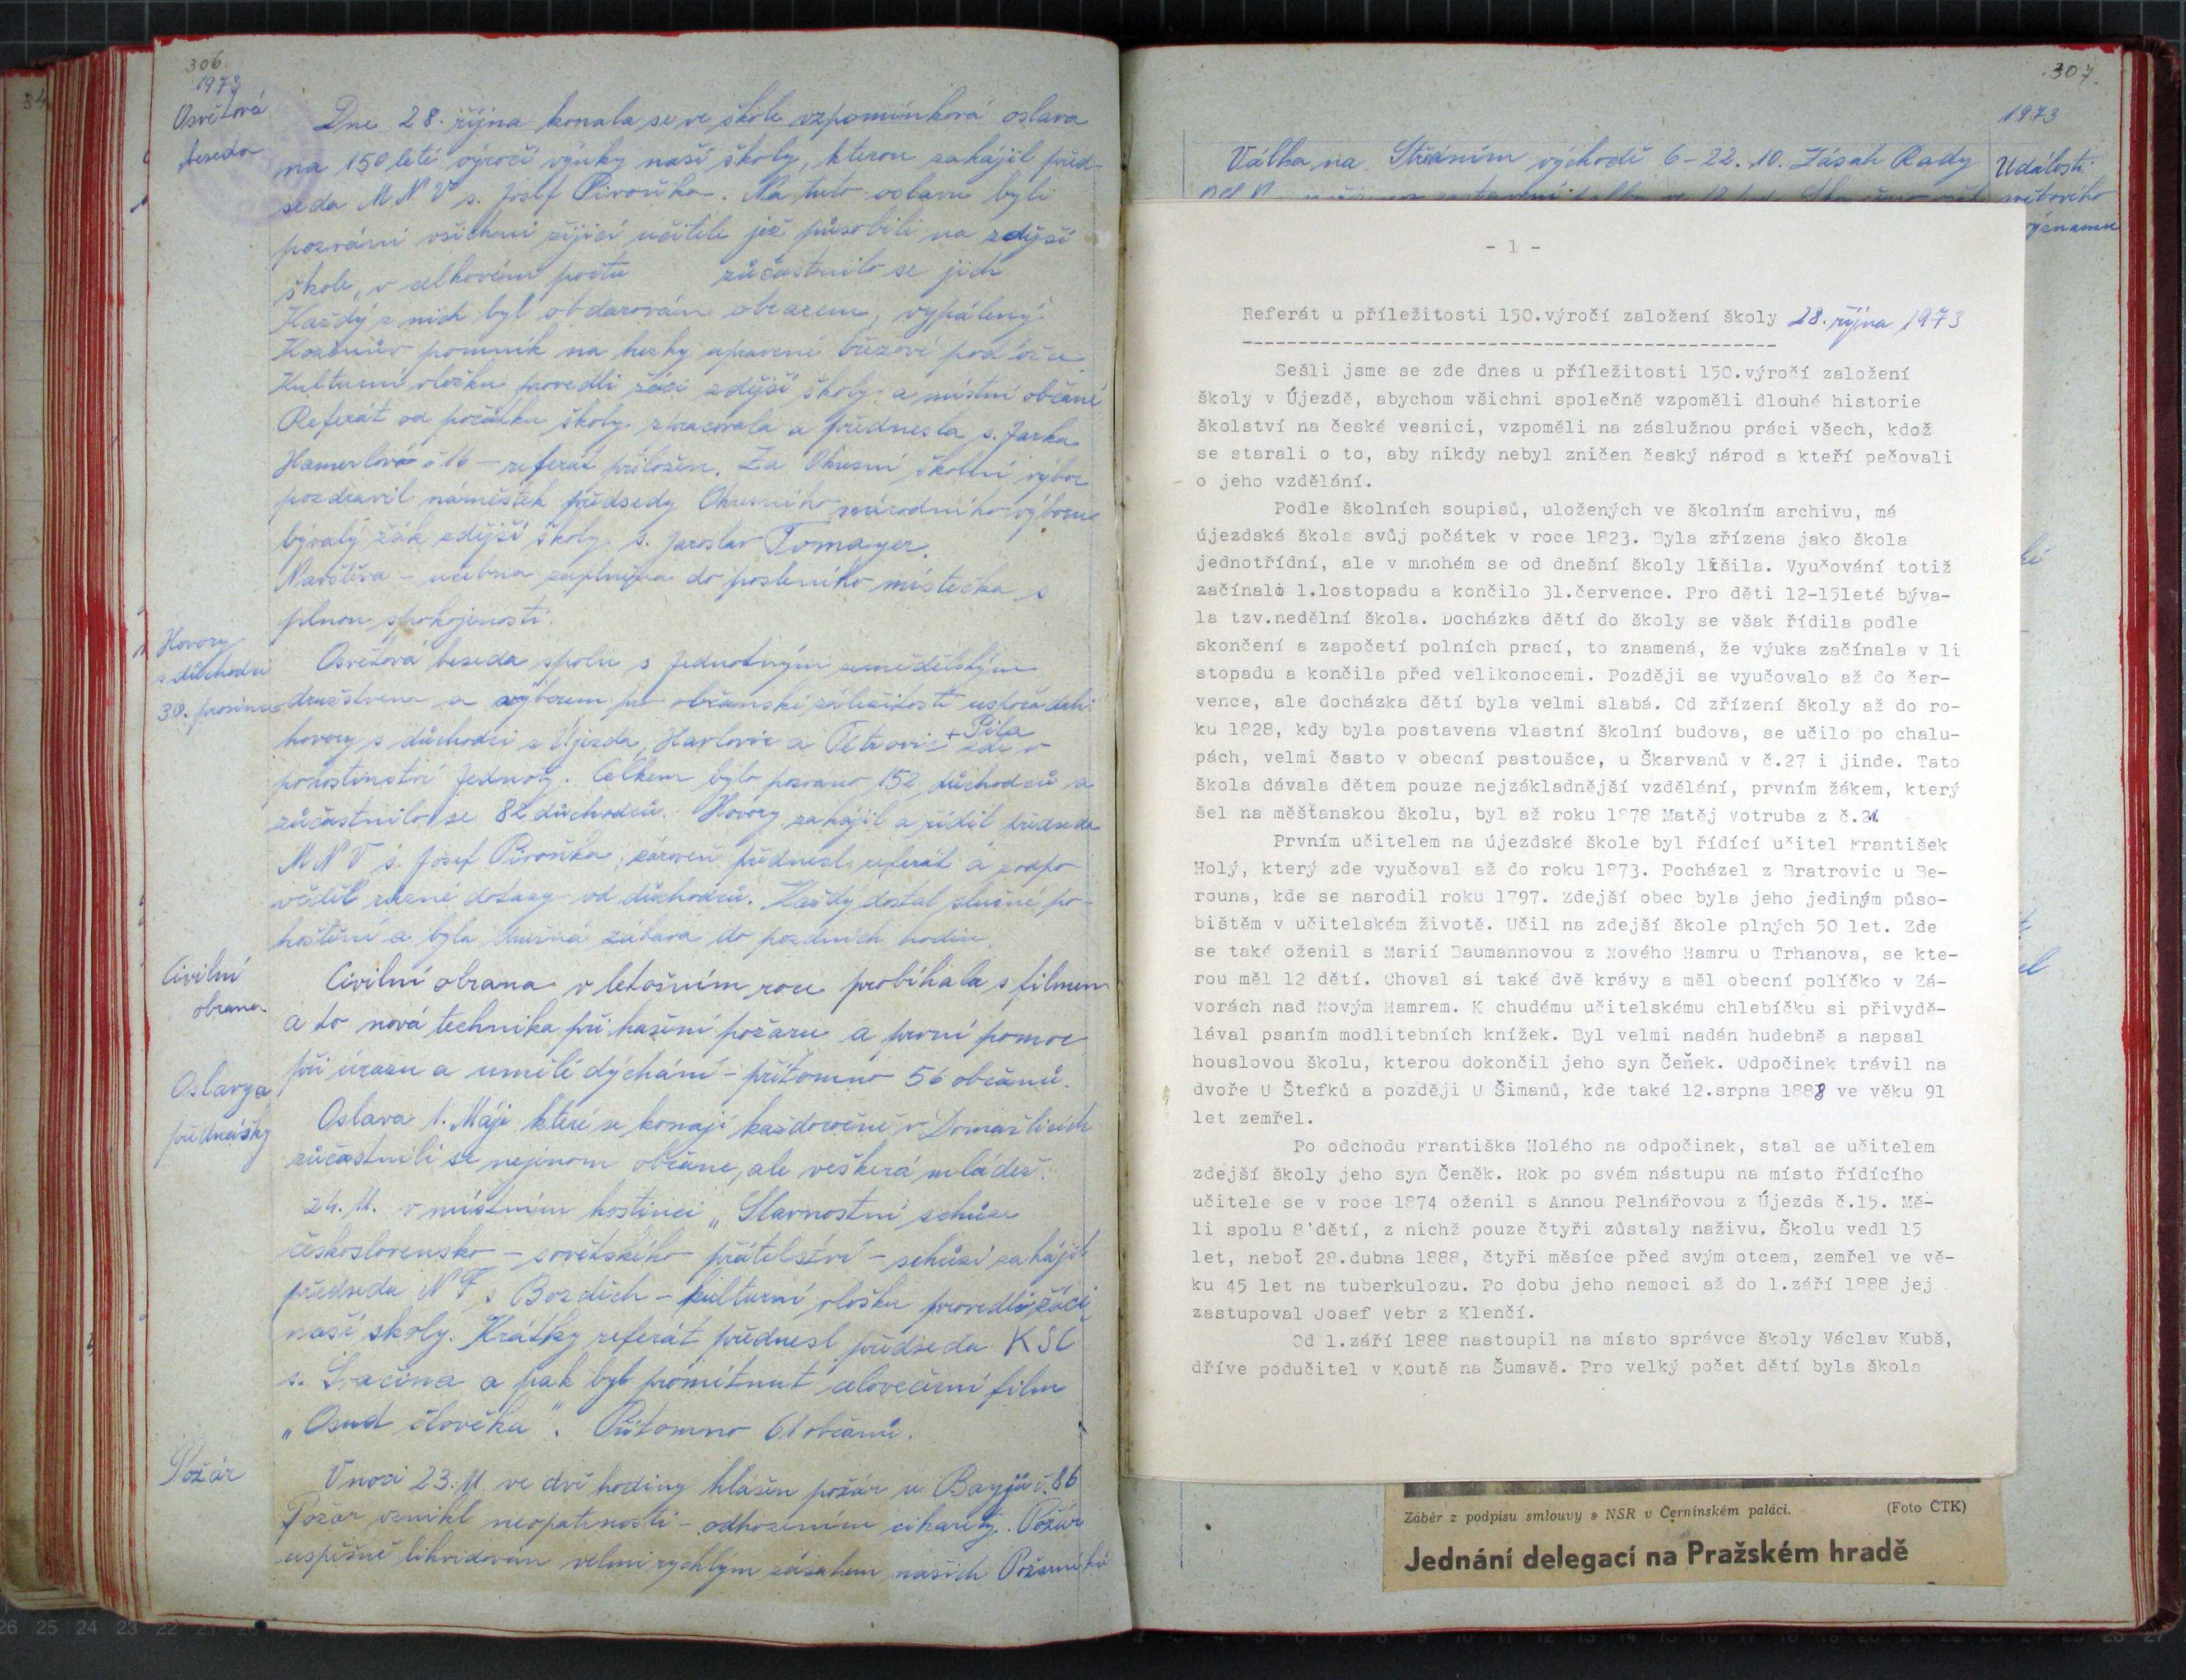 306
1973
Osvětová
beseda
Dne 28. října konala se ve škole vzpomínková oslava
na 150 leté výročí výuky naší školy, kterou zahájil před-
seda M N V s. Josef Pivoňka. Na tuto oslavu byli
pozváni všichni žijící učitelé jež působili na zdejší
škole, v celkovém počtu zúčastnilo se jich
Každý z nich byl obdarován obrazem, vypálený
Kozinův pomník na hezky upravené březové podložce
Kulturní vložku provedli žáci zdejší školy a místní občané
Referát od počátku školy zpracovala a přednesla s. Jarka
Hamerlová č 16 – referát přiložen. Za Okresní školní výbor
pozdravil náměstek předsedy Okresního národního výboru
bývalý žák zdejší školy s. Jaroslav Tomayer.
Navštěva – učebna zaplněna do posledního místečka s
plnou spokojeností.
Hovory
s důchodci
30. prosince
Osvětová beseda spolu s Jednotným zemědělským
družstvem a výborem pro občanské záležitosti uspořádali
hovory s důchodci z Újezda, Havlovic a Petrovic + Pila zde v
pohostinství Jednoty. Celkem bylo pozvano 152 důchodců a
zúčastnilo se 82 důchodců. Hovory zahájil a řídil předseda
M N V s. Josef Pivoňka, zároveň přednesl referát a zodpo-
věděl různé dotazy od důchodců. Každý dostal slušné po-
hoštění a byla družná zábava do pozdních hodin.
Civilní
obrana
Civilní obrana v letošním roce probíhala s filmem
a to nová technika při hašení požaru a první pomoc
při úrazu a umělé dýchání – přítomno 56 občanů.
Oslavy a
přednášky
Oslava 1. Máje které se konají každoročně v Domažlicích
zúčastnili se nejenom občane, ale veškerá mládež.
24. 11. v místním hostinci „Slavnostní schůze
československo – sovětského přátelství – schůzi zahájil
předseda N F s Bozděch – kulturní vložku provedli žáci
naší školy. Krátky referát přednesl předseda KSČ
s. Svačina a pak byl promítnut celovečerní film
„Osud člověka". Přítomno 61 občanů.
Požár
V noci 23. 11. ve dvě hodiny hlášen požár u Bayjů č. 86
Požár vznikl neopatrností – odhozením cikarety. Požár
uspěšně likvidován velmi rychlým zásahem našich Požarníků
307.
1973
Válka na Středním východě 6–22. 10. Zásah Rady
Události
světového
významu
- 1 -
Referát u příležitosti 150.výročí založení školy 28. října 1973
Sešli jsme se zde dnes u příležitosti 150.výročí založení
školy v Újezdě, abychom všichni společně vzpoměli dlouhé historie
školství na české vesnici, vzpoměli na záslužnou práci všech, kdož
se starali o to, aby nikdy nebyl zničen český národ a kteří pečovali
o jeho vzdělání.
Podle školních soupisů, uložených ve školním archivu, má
újezdská škola svůj počátek v roce 1823. Byla zřízena jako škola
jednotřídní, ale v mnohém se od dnešní školy lišila. Vyučování totiž
začínalo 1.lostopadu a končilo 31.července. Pro děti 12-15leté býva-
la tzv.nedělní škola. Docházka dětí do školy se však řídila podle
skončení a započetí polních prací, to znamená, že výuka začínala v li
stopadu a končila před velikonocemi. Později se vyučovalo až do čer-
vence, ale docházka dětí byla velmi slabá. Od zřízení školy až do ro-
ku 1828, kdy byla postavena vlastní školní budova, se učilo po chalu-
pách, velmi často v obecní pastoušce, u Škarvanů v č.27 i jinde. Tato
škola dávala dětem pouze nejzákladnější vzdělání, prvním žákem, který
šel na měšťanskou školu, byl až roku 1878 Matěj Votruba z č.21
Prvním učitelem na újezdské škole byl řídící učitel František
Holý, který zde vyučoval až do roku 1873. Pocházel z Bratrovic u Be-
rouna, kde se narodil roku 1797. Zdejší obec byla jeho jediným půso-
bištěm v učitelském životě. Učil na zdejší škole plných 50 let. Zde
se také oženil s Marií Baumannovou z Nového Hamru u Trhanova, se kte-
rou měl 12 dětí. Choval si také dvě krávy a měl obecní políčko v Zá-
vorách nad Novým Hamrem. K chudému učitelskému chlebíčku si přivydě-
lával psaním modlitebních knížek. Byl velmi nadán hudebně a napsal
houslovou školu, kterou dokončil jeho syn Čeňek. Odpočinek trávil na
dvoře U Štefků a později U Šimanů, kde také 12.srpna 1888 ve věku 91
let zemřel.
Po odchodu Františka Holého na odpočinek, stal se učitelem
zdejší školy jeho syn Čeněk. Rok po svém nástupu na místo řídícího
učitele se v roce 1874 oženil s Annou Pelnářovou z Újezda č.15. Mě-
li spolu 8 dětí, z nichž pouze čtyři zůstaly naživu. Školu vedl 15
let, neboť 28.dubna 1888, čtyři měsíce před svým otcem, zemřel ve vě-
ku 45 let na tuberkulozu. Po dobu jeho nemoci až do 1.září 1888 jej
zastupoval Josef Vebr z Klenčí.
Od 1.září 1888 nastoupil na místo správce školy Václav Kubš,
dříve podučitel v Koutě na Šumavě. Pro velký počet dětí byla škola
Záběr z podpisu smlouvy s NSR v Černínském paláci. (Foto ČTK)
Jednání delegací na Pražském hradě